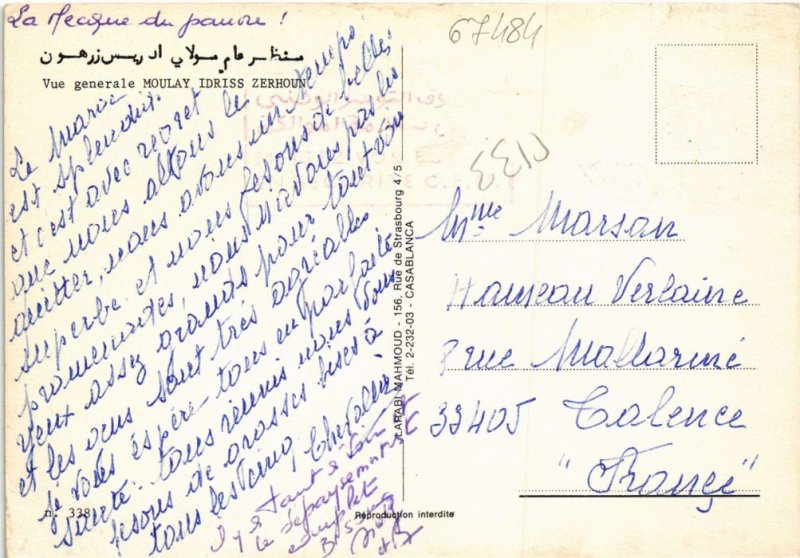 La Mecque du pauvre !
منظر عام مولاي ادريس زرهون
Vue generale MOULAY IDRISS ZERHOUN
Le Maroc
est splendide.
et c'est avec regret
que nous allons le
quitter, nous avons un temps
superbe et nous faisons de belles
promenades, nous n'avons pas les
yeux assez grands pour tout voir
et les gens sont très agréables
Je vous espère tous en parfaite
santé. tous réunis nous vous
fesons de grosses bises à
tous les cinq,
Il y a tant à voir et
le dépaysement est
complet
n. 338
LARABI MAHMOUD - 156, Rue de Strasbourg 4/5
Tél. 2-232-03 - CASABLANCA
Reproduction interdite
67484
Mme Marsan
Hameau Verlaine
8 rue Mallarmé
33405 Talence
"France"